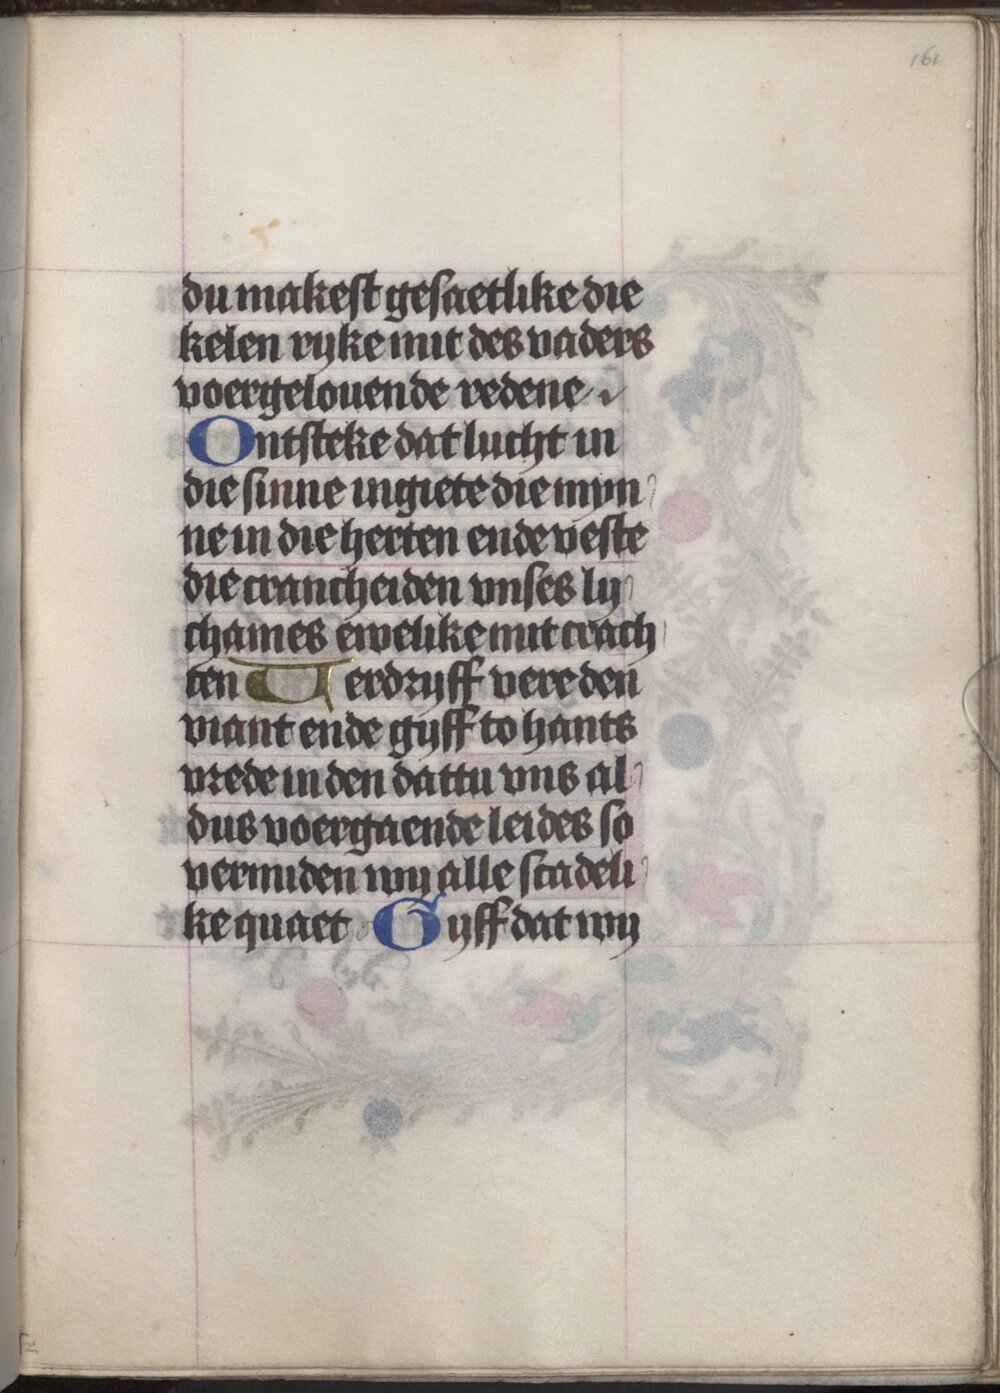 161
du makest gesaetlike die
kelen ryke mit des vaders
voergelouende redene
Ontsteke dat lucht in
die sinne ingiete die myn
ne in die herten ende veste
die crancheiden vnses ly
chames ewelike mit crach
ten Verdryff vere den
viant ende gyff to hants
vrede in den dattu vns al
dus voergaende leides so
vermiden wy alle scadeli
ke quaet Gyff dat wy